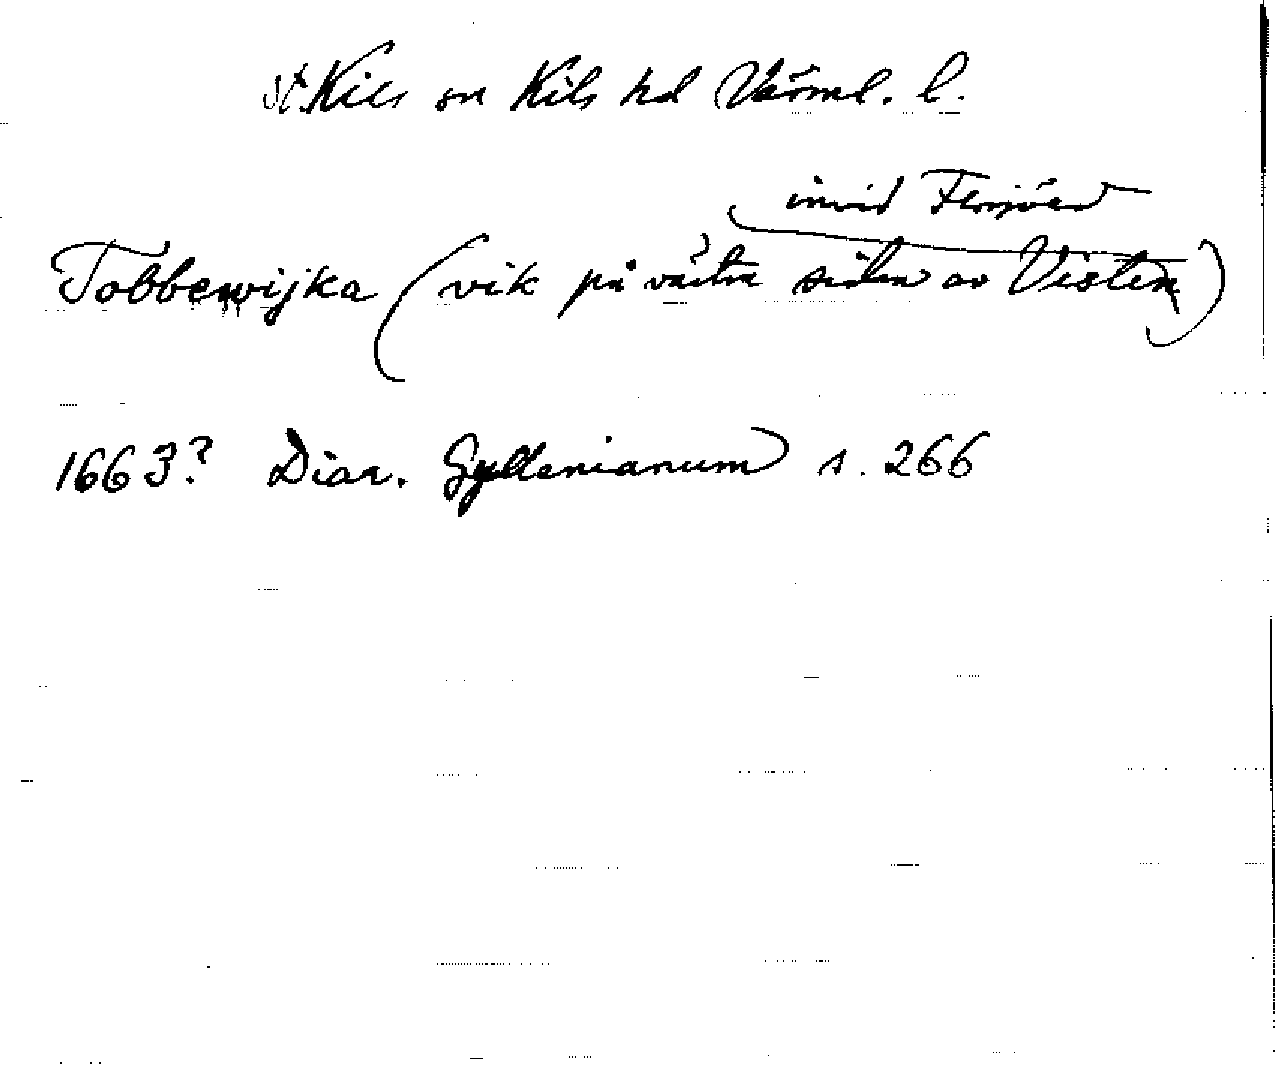 st. Kils sn Kils hd Värml. l.
invid
Tobbewijka (vik på västra sidan av Visten)
1663? Diar. Gyllenianum s. 266